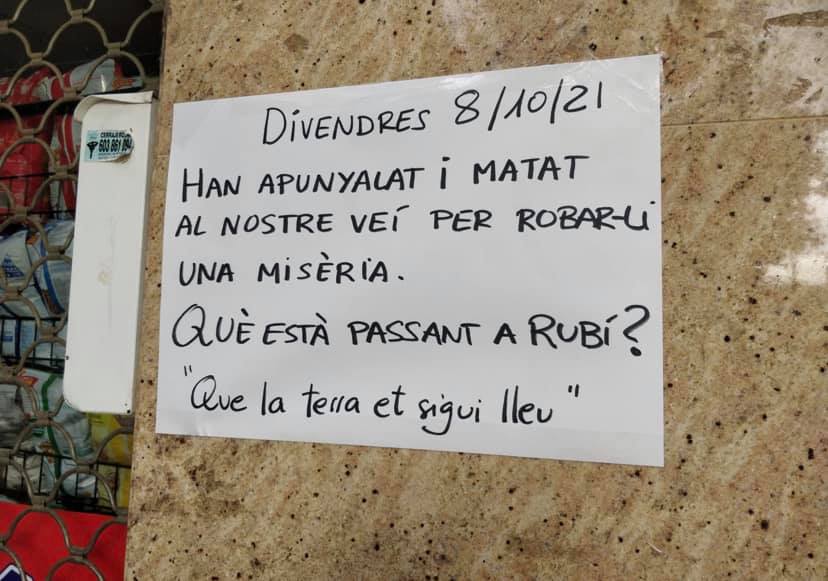 DIVENDRES 8/10/21
HAN APUNYALAT i MATAT
AL NOSTRE VEÍ PER ROBAR-LI
UNA MISÈRIA.
QUÈ ESTÀ PASSANT A RUBÍ?
"Que la terra et sigui lleu"
CERRAJERO
603 861 894